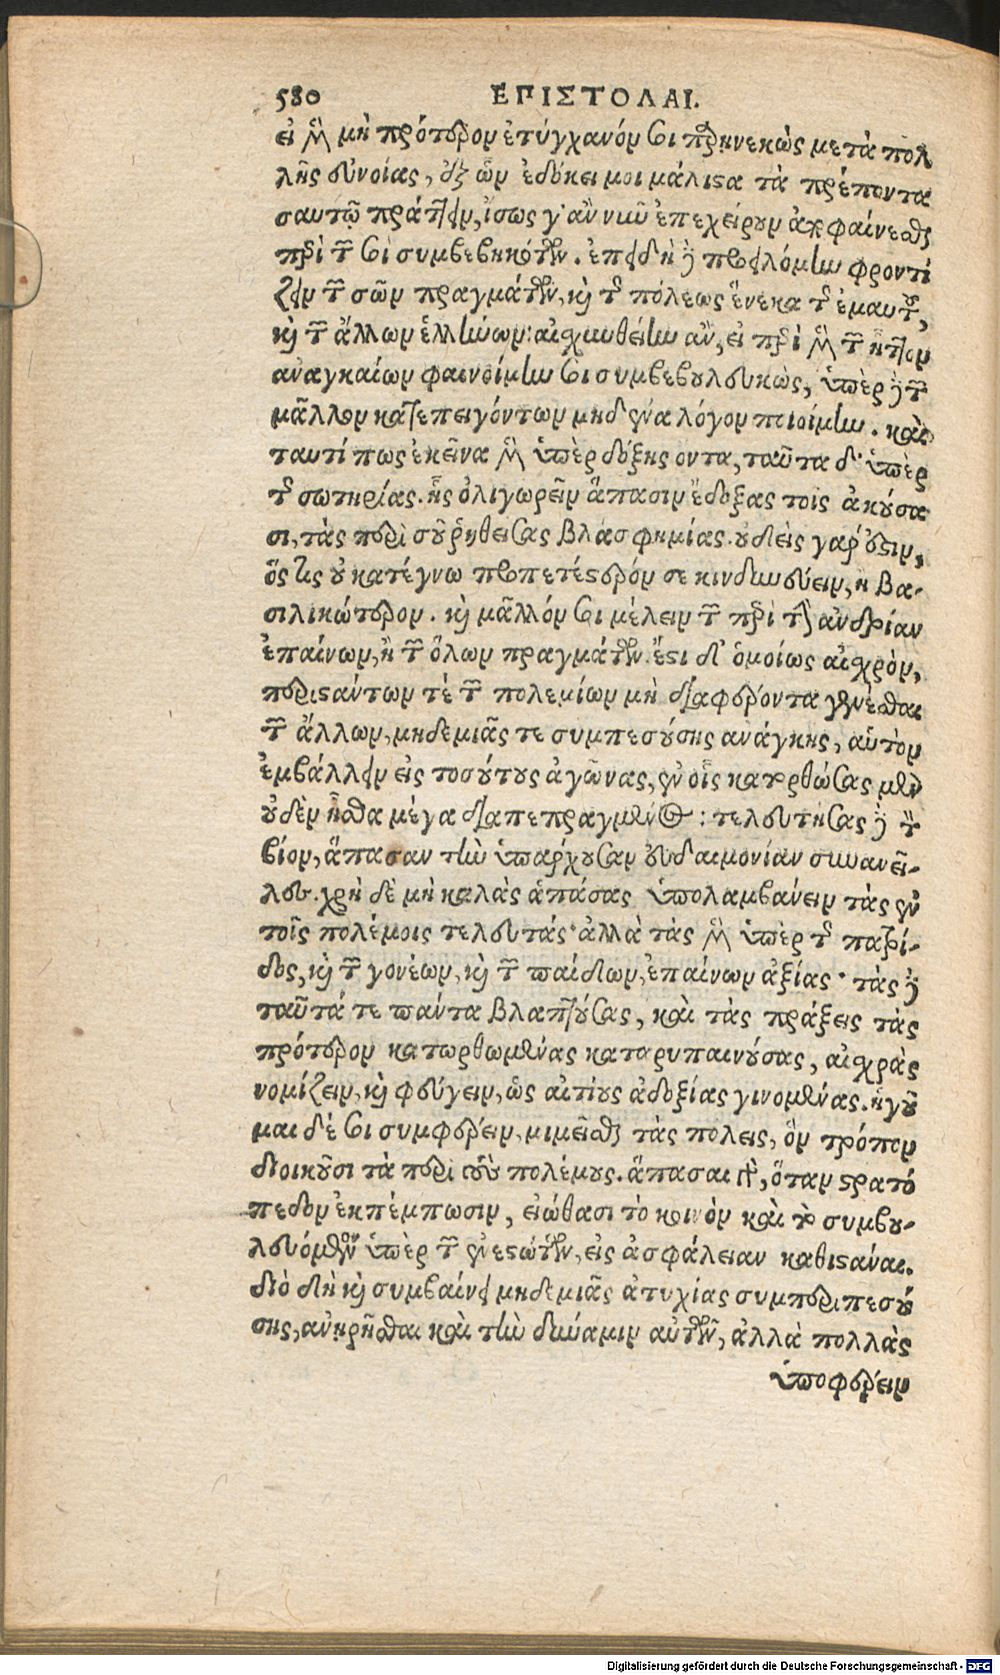 580 ΕΠΙΣΤΟΛΑΙ.
εἰ μὲν μὴ πρότερον ἐτύγχανόν σοι παρῃνεκὼς μετὰ πολ
λῆς εὐνοίας, ἐξ ὧν ἐδόκει μοι μάλιστα τὰ πρέποντα
σαυτῷ πράττειν, ἴσως γ' ἂν νυνὶ ἐπεχείρουν ἀποφαίνεσθαι
περὶ τῶν σοὶ συμβεβηκότων. ἐπειδὴ δὲ προειλόμην φροντί
ζειν τῶν σῶν πραγμάτων, καὶ τῆς πόλεως ἕνεκα τῆς ἐμαυτοῦ,
καὶ τῶν ἄλλων ἑλλήνων: αἰσχυνθείην ἂν, εἰ περὶ μὲν τῶν ἧττον
ἀναγκαίων φαινοίμην σοι συμβεβουλευκὼς, ὑπὲρ δὲ τῶν
μᾶλλον κατεπειγόντων μηδένα λόγον ποιοίμην. καὶ
ταυτί πως ἐκεῖνα μὲν ὑπὲρ δόξης ὄντα, ταῦτα δ' ὑπὲρ
τῆς σωτηρίας. ἧς ὀλιγωρεῖν ἅπασιν ἔδοξας τοῖς ἀκούσα
σι, τὰς περὶ σοῦ ῥηθείσας βλασφημίας. οὐδεὶς γάρ ἐστιν,
ὅστις οὐ κατέγνω προπετέστερόν σε κινδυνεύειν, ἢ βα-
σιλικώτερον. καὶ μᾶλλόν σοι μέλειν τῶν περὶ τὴν ἀνδρίαν
ἐπαίνων, ἢ τῶν ὅλων πραγμάτων. ἔστι δ' ὁμοίως αἰσχρὸν,
περιστάντων τὲ τῶν πολεμίων μὴ διαφέροντα γενέσθαι
τῶν ἄλλων, μηδεμιᾶς τε συμπεσούσης ἀνάγκης, αὑτὸν
ἐμβάλλειν εἰς τοσούτους ἀγῶνας, ἐν οἷς κατορθώσας μὲν
οὐδὲν ἦσθα μέγα διαπεπραγμένος: τελευτήσας δὲ τὸν
βίον, ἅπασαν τὴν ὑπάρχουσαν εὐδαιμονίαν συνανεῖ-
λες. χρὴ δὲ μὴ καλὰς ἁπάσας ὑπολαμβάνειν τὰς ἐν
τοῖς πολέμοις τελευτάς· ἀλλὰ τὰς μὲν ὑπὲρ τῆς πατρί-
δος, καὶ τῶν γονέων, καὶ τῶν παίδων, ἐπαίνων ἀξίας· τὰς δὲ
ταῦτά τε πάντα βλαπτούσας, καὶ τὰς πράξεις τὰς
πρότερον κατωρθωμένας καταρυπαινούσας, αἰσχρὰς
νομίζειν, καὶ φεύγειν, ὡς αἰτίους ἀδοξίας γινομένας. ἡγοῦ
μαι δέ σοι συμφέρειν, μιμεῖσθαι τὰς πόλεις, ὃν τρόπον
διοικοῦσι τὰ περὶ τοὺς πολέμους. ἅπασαι γὰρ, ὅταν στρατό
πεδον ἐκπέμπωσιν, εἰώθασι τὸ κοινὸν καὶ τὸ συμβου-
λευόμενον ὑπὲρ τῶν ἐνεστώτων, εἰς ἀσφάλειαν καθιστάναι.
διὸ δὴ καὶ συμβαίνει μηδεμιᾶς ἀτυχίας συμπεριπεσού
σης, ἀνῃρῆσθαι καὶ τὴν δύναμιν αὐτῶν, ἀλλὰ πολλὰς
ὑποφέρειν
Digitalisierung gefördert durch die Deutsche Forschungsgemeinschaft - DFG